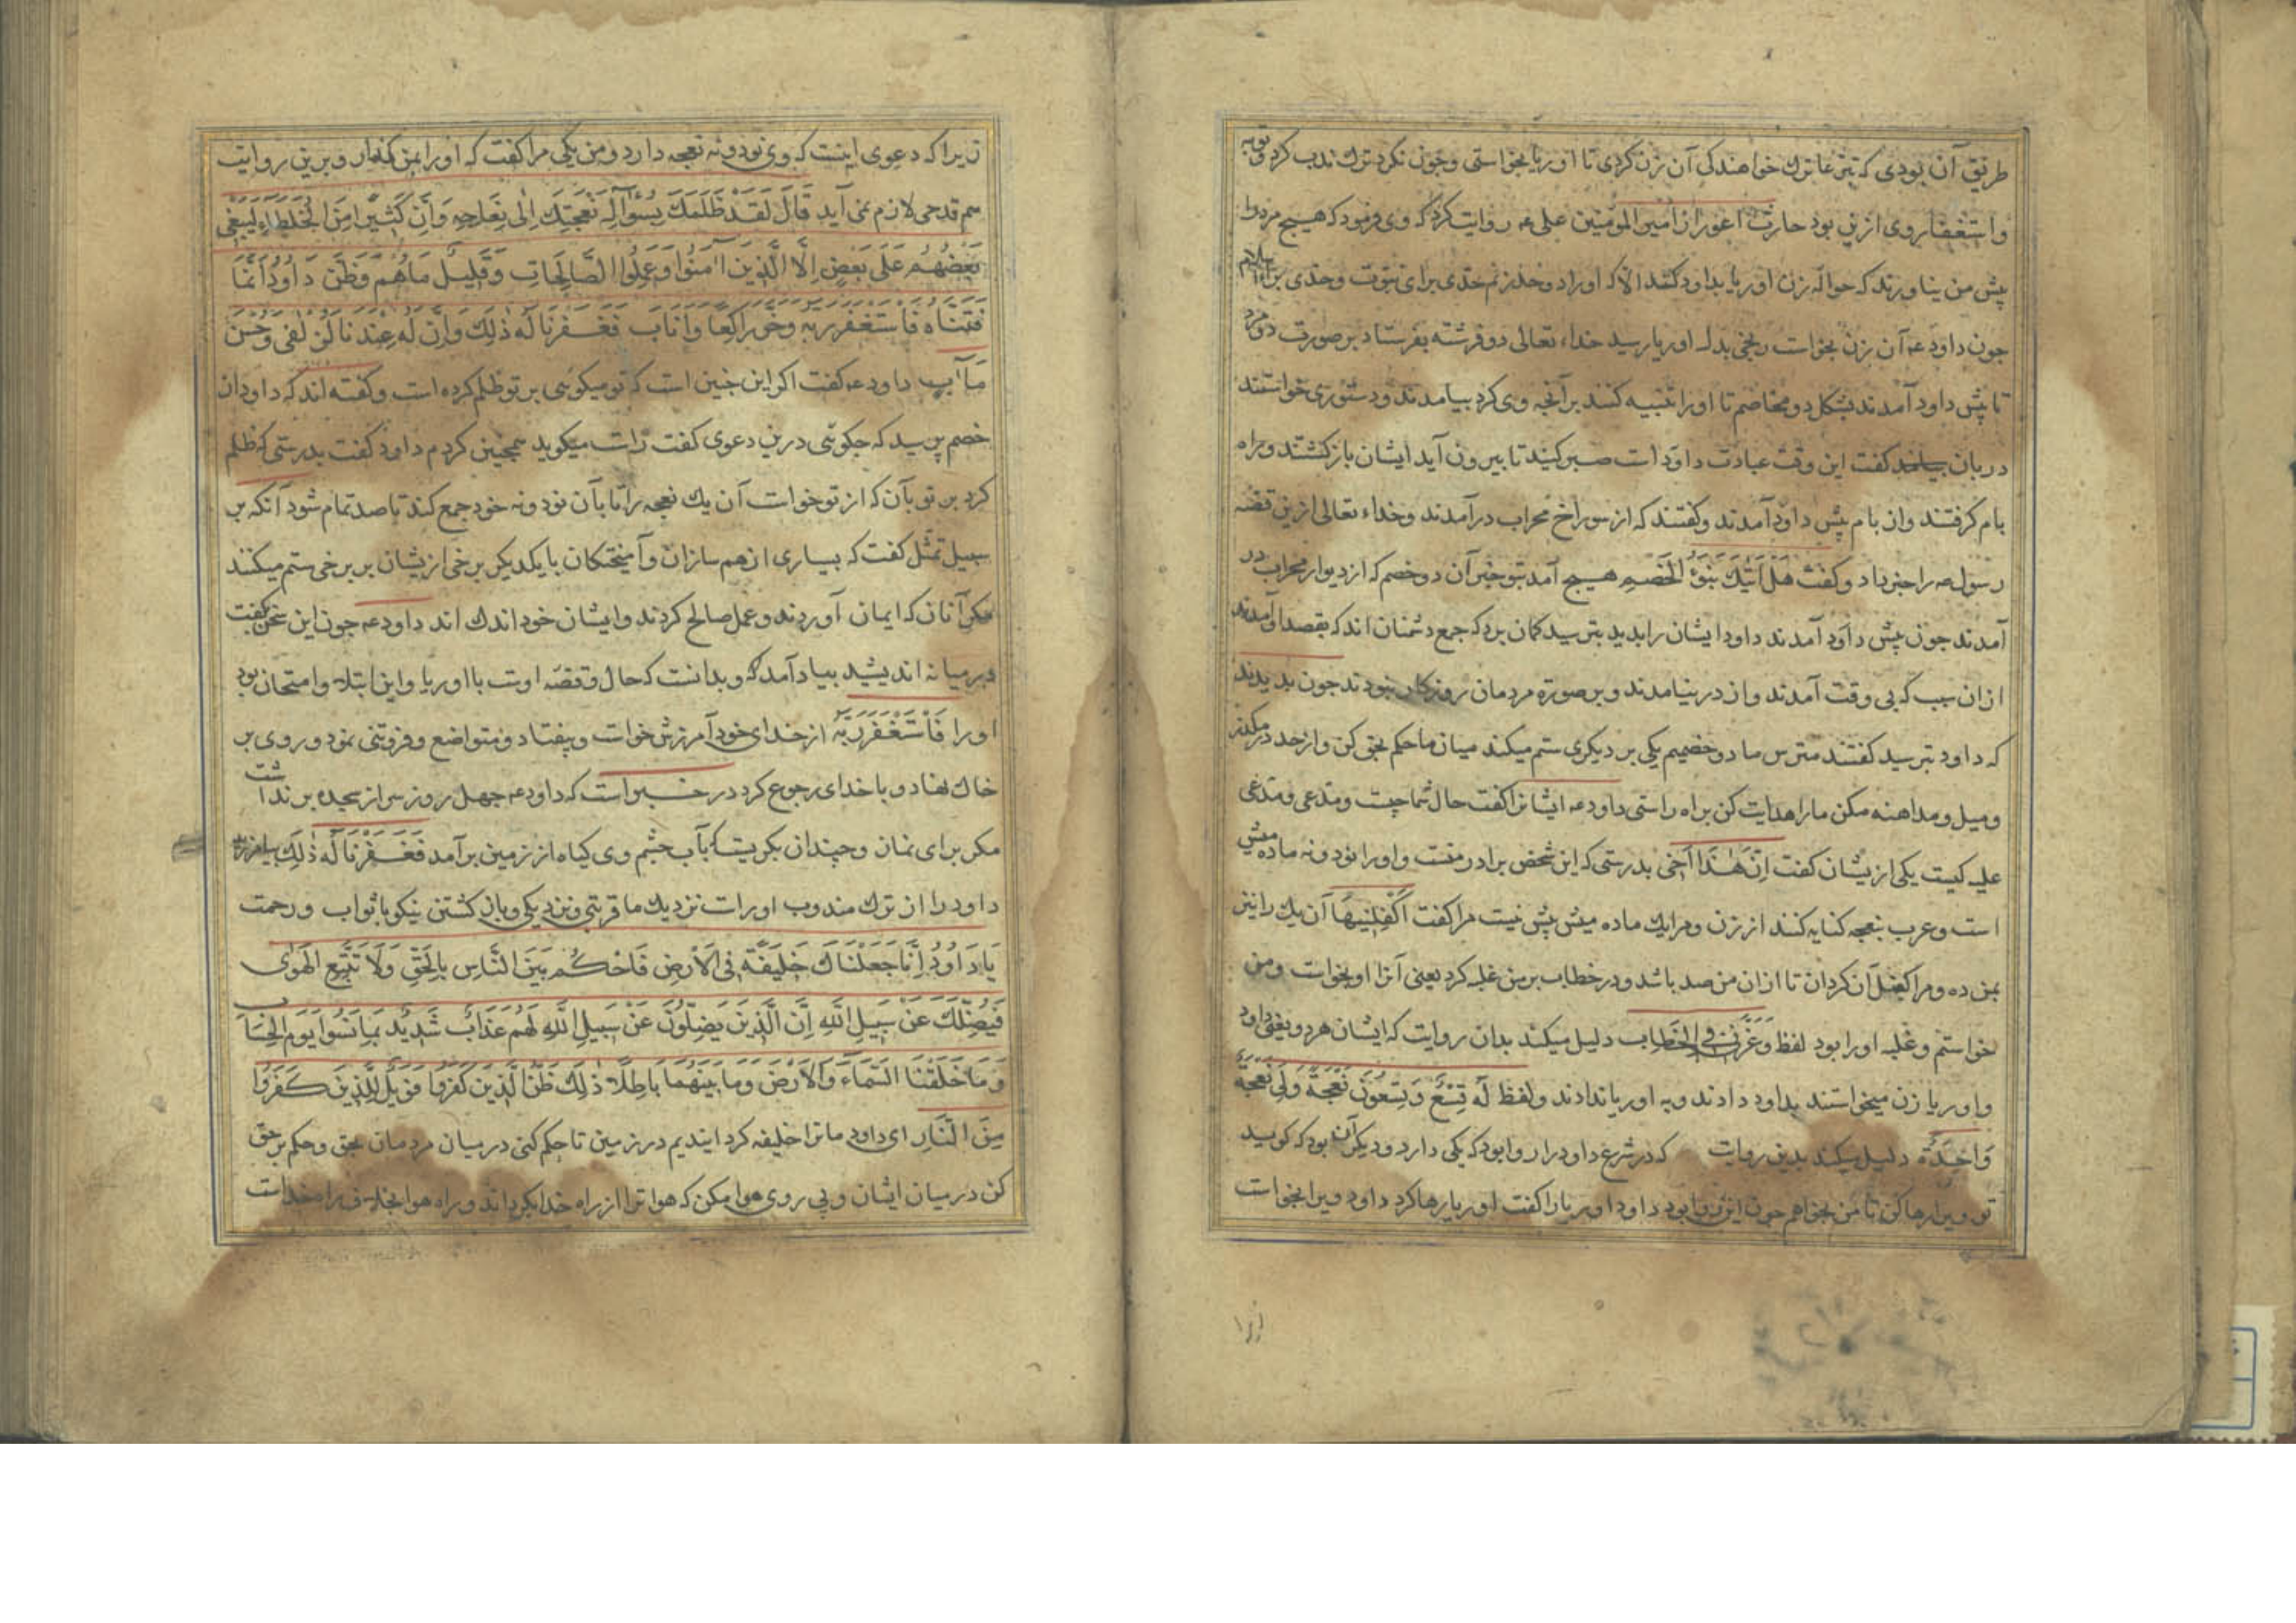 طریق آن بودی که تبرعا ترك خواهندکی آن زن کردی تا اوریا بخواستی وجون نکرد ترك ندب کرد وتوبه
واستغفار وی ازین بود حارث اعور از امیر المومنین علی عه روایت کرد که وی فرمود که هیچ مرد را
پیش من نیاورند که حوالۀ زن اوریا بداود کند الا که اورا دو حد زنم حدی برای نبوت وحدی برای اسلام
جون داود عه آن زن بخواست رنجی بدل اوریا رسید خداء تعالی دو فرشته بفرستاد بر صورت دو مرد
تا پیش داود آمدند بشکل دو مخاصم تا اورا تنبیه کنند بر آنجه وی کرد بیامدند ودستوری خواستند
دربان کفت این وقت عبادت داود است صبر کنید تا بیرون آید ایشان باز کشتند وراه
بام کرفتند وان بام پیش داود آمدند وکفتند که از سوراخ محراب در آمدند وخداء تعالی ازین قصه
رسول صه را خبر داد وکفت هَلْ اَتٰیكَ نَبَؤُ الْخَصْمِ هیچ آمد بتو خبر آن دو خصم که از دیوار محراب در
آمدند جون پیش داود آمدند داود ایشان را بدید بترسید کمان برد که جمع دشمنان اند که بقصد او آمدند
ازان سبب که بی وقت آمدند واز در نیامدند وبر صورة مردمان روزکار نبودند جون بدیدند
که داود بترسید کفتند مترس ما دو خصمیم یکی بر دیکری ستم میکند میان ما حکم بحق کن واز حد در مکذر
ومیل ومداهنه مکن ما را هدایت کن براه راستی داود عه ایشانرا کفت حال شما چیست ومدعی ومدعی
علیه کیست یکی ازیشان کفت اِنَّ هٰذَا اَخی بدرستی که این شخص برادر منست واورا نود ونه ماده میش
است وعرب بنعجه کنایه کنند از زن ومرا یك ماده میش بیش نیست مرا کفت اَکْفِلْنِیهَا آن یك را نیز
بمن ده ومرا کفیل آن کردان تا ازان من صد باشد ودر خطاب بر من غلبه کرد یعنی آنرا او بخواست ومن
خواستم وغلبه اورا بود لفظ وَعَزَّنی فِی الْخِطَابِ دلیل میکند بدان روایت که ایشان هر دو یعنی داود
واوریا زن میخواستند بداود دادند وبه اوریا ندادند ولفظ لَهُ تِسْعٌ وَتِسْعُونَ نَعْجَةً وَلِیَ نَعْجَةٌ
وَاحِدَةٌ دلیل میکند بدین روایت که در شرع داود را روا بود که یکی دارد ودیکر آن بود که کوید
تو ویرا رها کن تا من بخواهم جون این روا بود داود اوریا را کفت اوریا رها کرد داود ویرا بخواست
زیرا که دعوی اینست که وی نود ونه نعجه دارد ومن یکی مرا کفت که اورا بمن کذار وبرین روایت
هم قدحی لازم نمی آید قَالَ لَقَدْ ظَلَمَكَ بِسُؤَالِ نَعْجَتِكَ اِلٰی نِعَاجِهِ وَاِنَّ کَثیرًا مِنَ الْخُلَطَاءِ لَیَبْغی
بَعْضُهُمْ عَلٰی بَعْضٍ اِلَّا الَّذینَ اٰمَنُوا وَعَمِلُوا الصَّالِحَاتِ وَقَلیلٌ مَاهُمْ وَظَنَّ دَاوُدُ اَنَّمَا
فَتَنَّاهُ فَاسْتَغْفَرَ رَبَّهُ وَخَرَّ رَاکِعًا وَاَنَابَ فَغَفَرْنَا لَهُ ذٰلِكَ وَاِنَّ لَهُ عِنْدَنَا لَزُلْفٰی وَحُسْنَ
مَاٰبٍ داود عه کفت اکر این جنین است که تو میکوئی بر تو ظلم کرده است وکفته اند که داود ازان
خصم پرسید که جکوئی درین دعوی کفت راست میکوید همچنین کردم داود کفت بدرستی که ظلم
کرد بر تو بآن که از تو خواست آن یك نعجه را تا بآن نود ونه خود جمع کند تا صد تمام شود آنکه بر
سبیل تمثل کفت که بسیاری از هم سازان وآمیختکان با یکدیکر برخی ازیشان بر برخی ستم میکنند
مکر آنان که ایمان آوردند وعمل صالح کردند وایشان خود اندك اند داود عه جون این سخن بکفت
در میانه اندیشید بیاد آمدکه وبدانست که حال وقصۀ اوست با اوریا واین ابتلا وامتحان بود
اورا فَاسْتَغْفَرَ رَبَّهُ از خدای خود آمرزش خواست وبیفتاد ومتواضع وفروتنی نمود وروی بر
خاك نهاد وبا خدای رجوع کرد در خبر است که داود عه جهل روز سر از سجده بر نداشت
مکر برای نماز وچندان بکریست که بآب جشم وی کیاه از زمین بر آمد فَغَفَرْنَا لَهُ ذٰلِكَ بیامرزیدیم
داود را از ترك مندوب اوراست نزدیك ما قربتی ونزدیکی وباز کشتن نیکو با ثواب ورحمت
یَادَاوُدُ اِنَّا جَعَلْنَاكَ خَلیفَةً فِی الْاَرْضِ فَاحْکُمْ بَیْنَ النَّاسِ بِالْحَقِّ وَلَا تَتَّبِعِ الْهَوٰی
فَیُضِلَّكَ عَنْ سَبیلِ اللّٰهِ اِنَّ الَّذینَ یَضِلُّونَ عَنْ سَبیلِ اللّٰهِ لَهُمْ عَذَابٌ شَدیدٌ بِمَا نَسُوا یَوْمَ الْحِسَابِ
وَمَا خَلَقْنَا السَّمَاءَ وَالْاَرْضَ وَمَا بَیْنَهُمَا بَاطِلًا ذٰلِكَ ظَنُّ الَّذینَ کَفَرُوا فَوَیْلٌ لِلَّذینَ کَفَرُوا
مِنَ النَّارِ ای داود ما ترا خلیفه کردانیدیم در زمین تا حکم کنی در میان مردمان بحق وحکم بر حق
کن در میان ایشان وپی روی هوا مکن که هوا ترا از راه خدا بکرداند وراه هوا بخلاف راه خداست